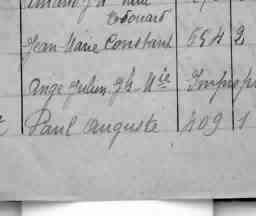 Edouard
Jean Marie Constant 554 2
Ange Julien Jh Mie Impropr
Paul Auguste 409 1